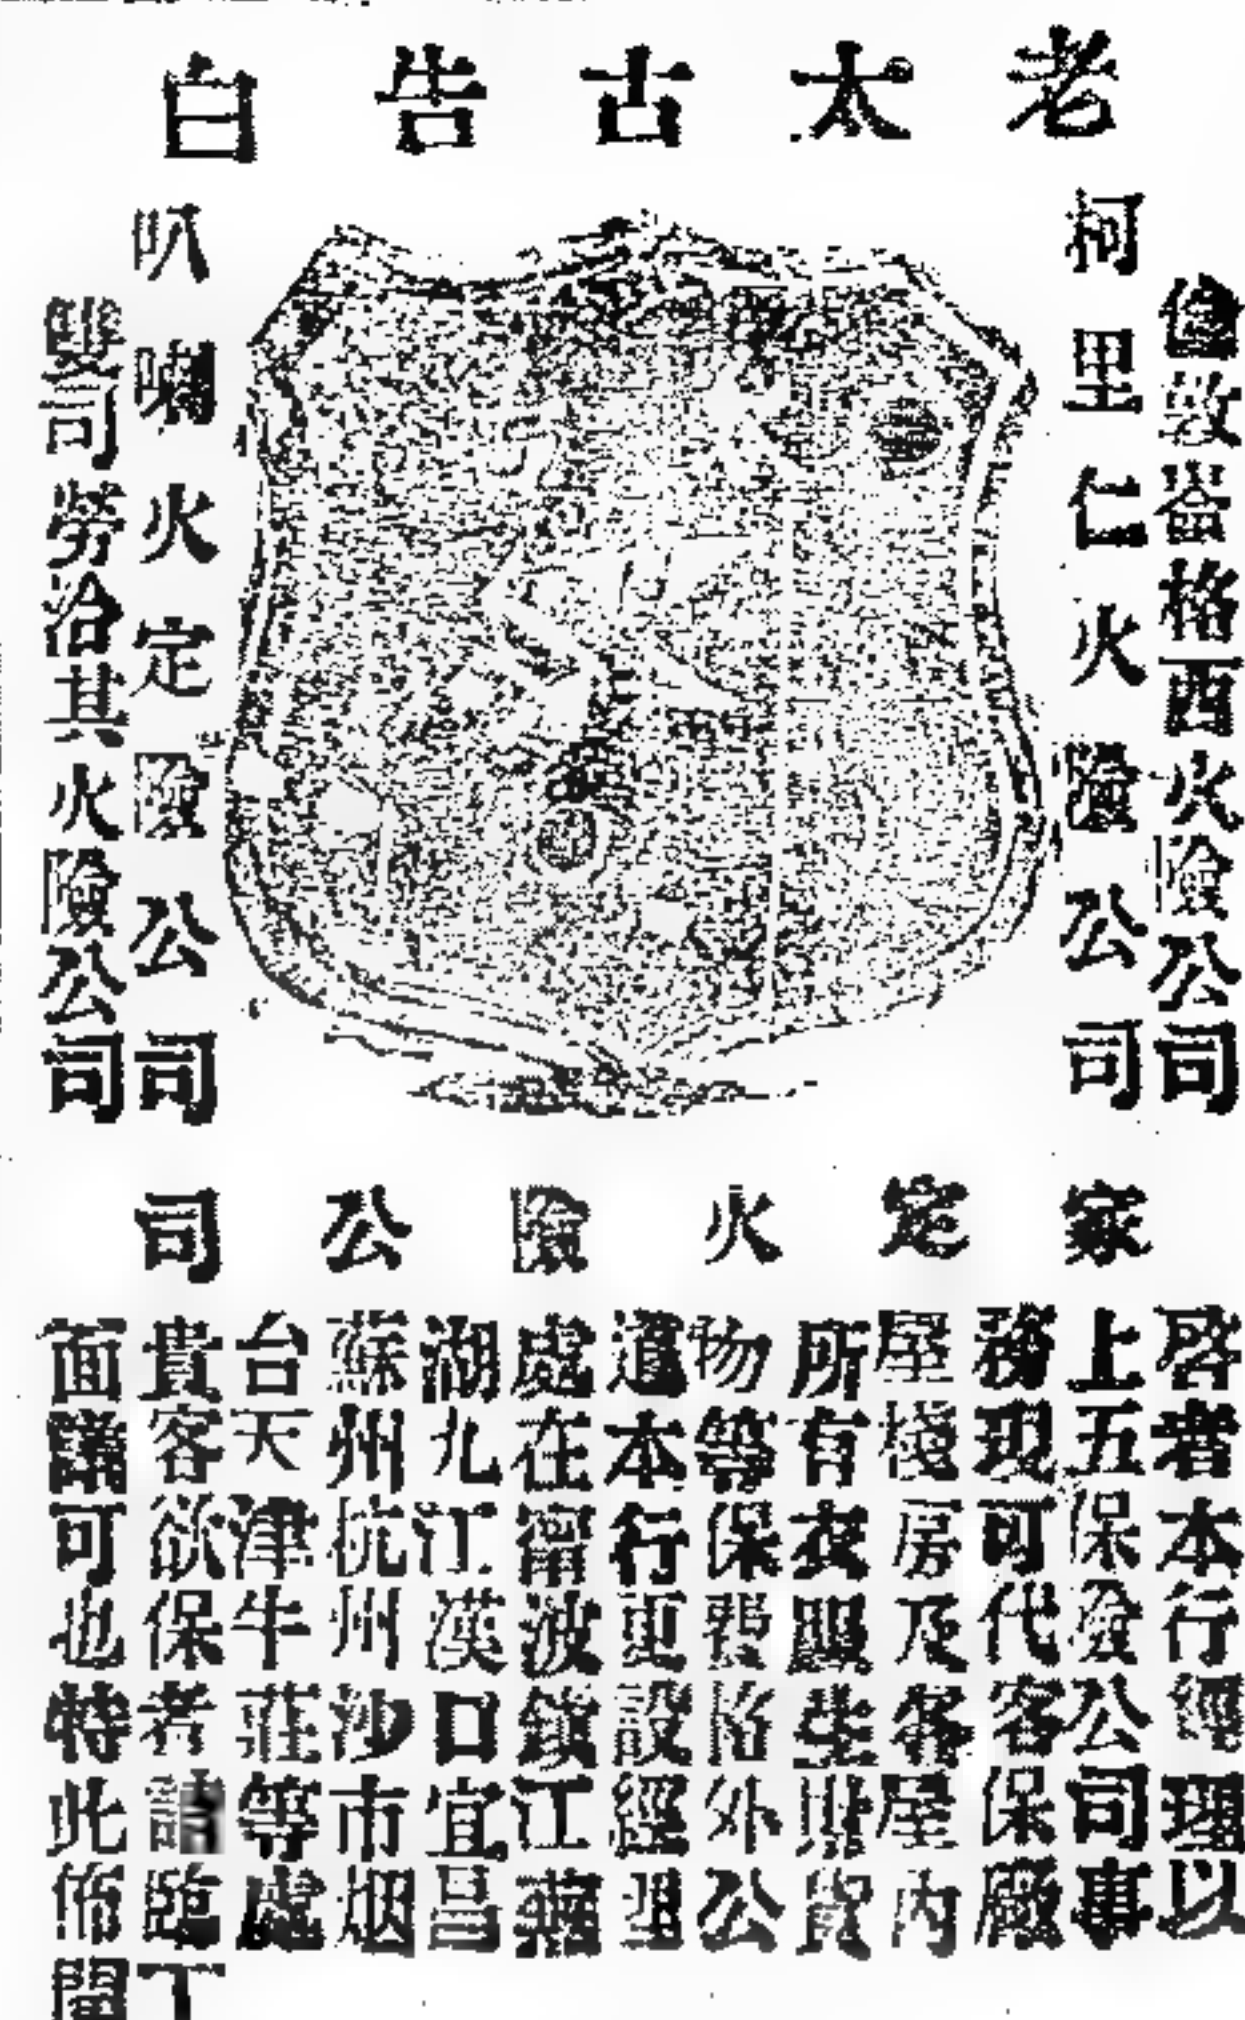 老太古告白
倫敦崙格西火險公司
柯里仁火險公司
叭喇火定險公司
雙司勞洽其火險公司
家定火險公司
啓者本行經理以
上五保險公司事
務現可代客保廠
屋棧房及各屋內
所有衣服生財貨
物等保費格外公
道本行更設經理
處在甯波鎮江蕪
湖九江漢口宜昌
蘇州杭州沙市烟
台天津牛莊等處
貴客欲保者請臨
面議可也特此佈聞